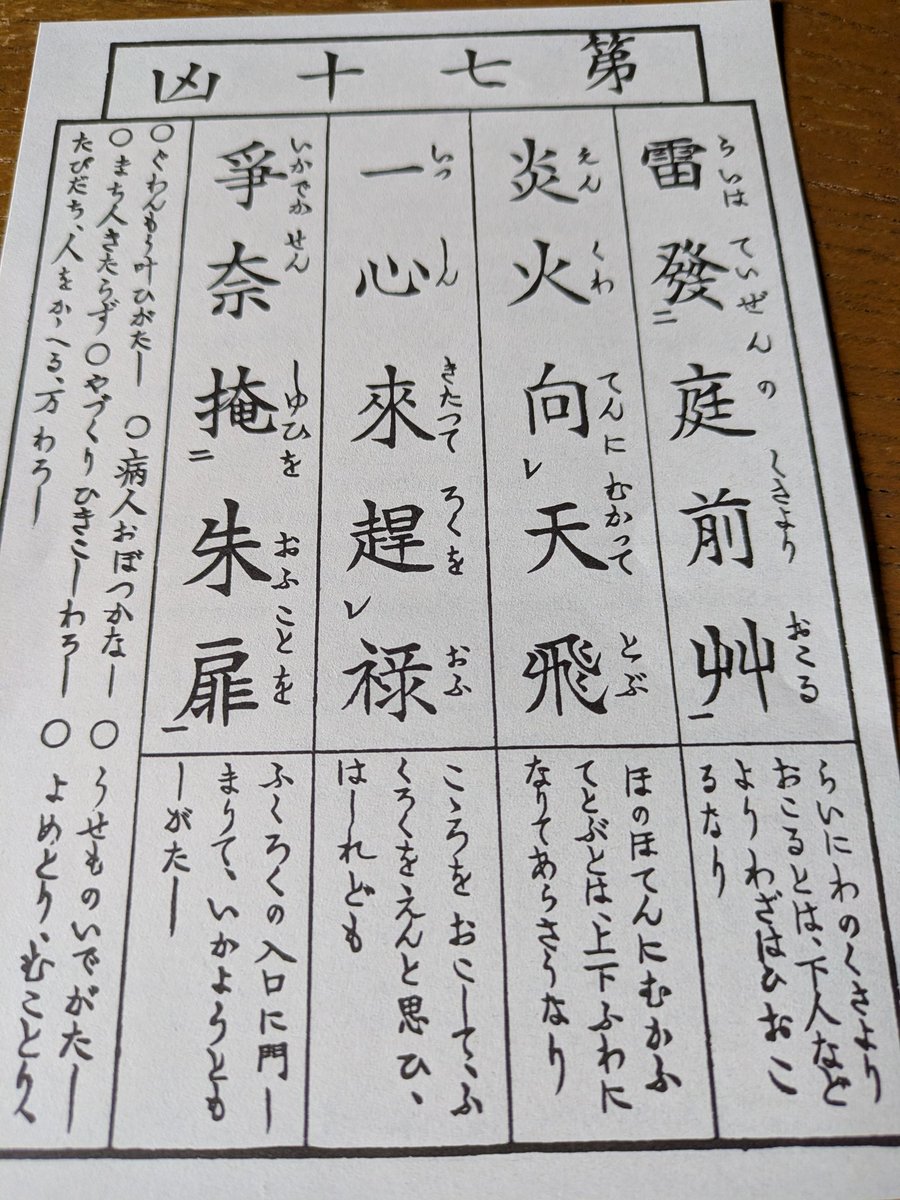 第七十凶
らいは ていぜんの くさより おこる
雷發二庭前艸一
らいにわのくさより
おこるとは、下人など
よりわざはひおこ
るなり
えん くわ てんに むかって とぶ
炎火向レ天飛
ほのほてんにむかふ
てとぶとは、上下ふわに
なりてあらさうなり
いっ しん きたつて ろくを おふ
一心來趕レ禄
こゝろをおこして、ふ
くろくをえんと思ひ、
はしれども
いかでか せん しゆひを おふことを
爭奈掩二朱扉一
ふくろくの入口に門し
まりて、いかようとも
しがたし
○ぐわんもう叶ひがたし ○病人おぼつかなし ○うせものいでがたし
○まち人きたらず ○やづくりひきこしわろし ○よめとり、むことり、
たびだち、人をかゝへる、万わろし